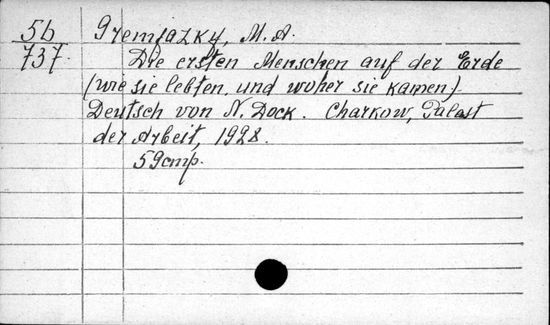 5b Gremjazky, M.A.
737. Die ersten Menschen auf der Erde
(wie sie lebten, und woher sie kamen).
Deutsch von N. Dock. Charkow, Palast
der Arbeit, 1928.
59 cmp.